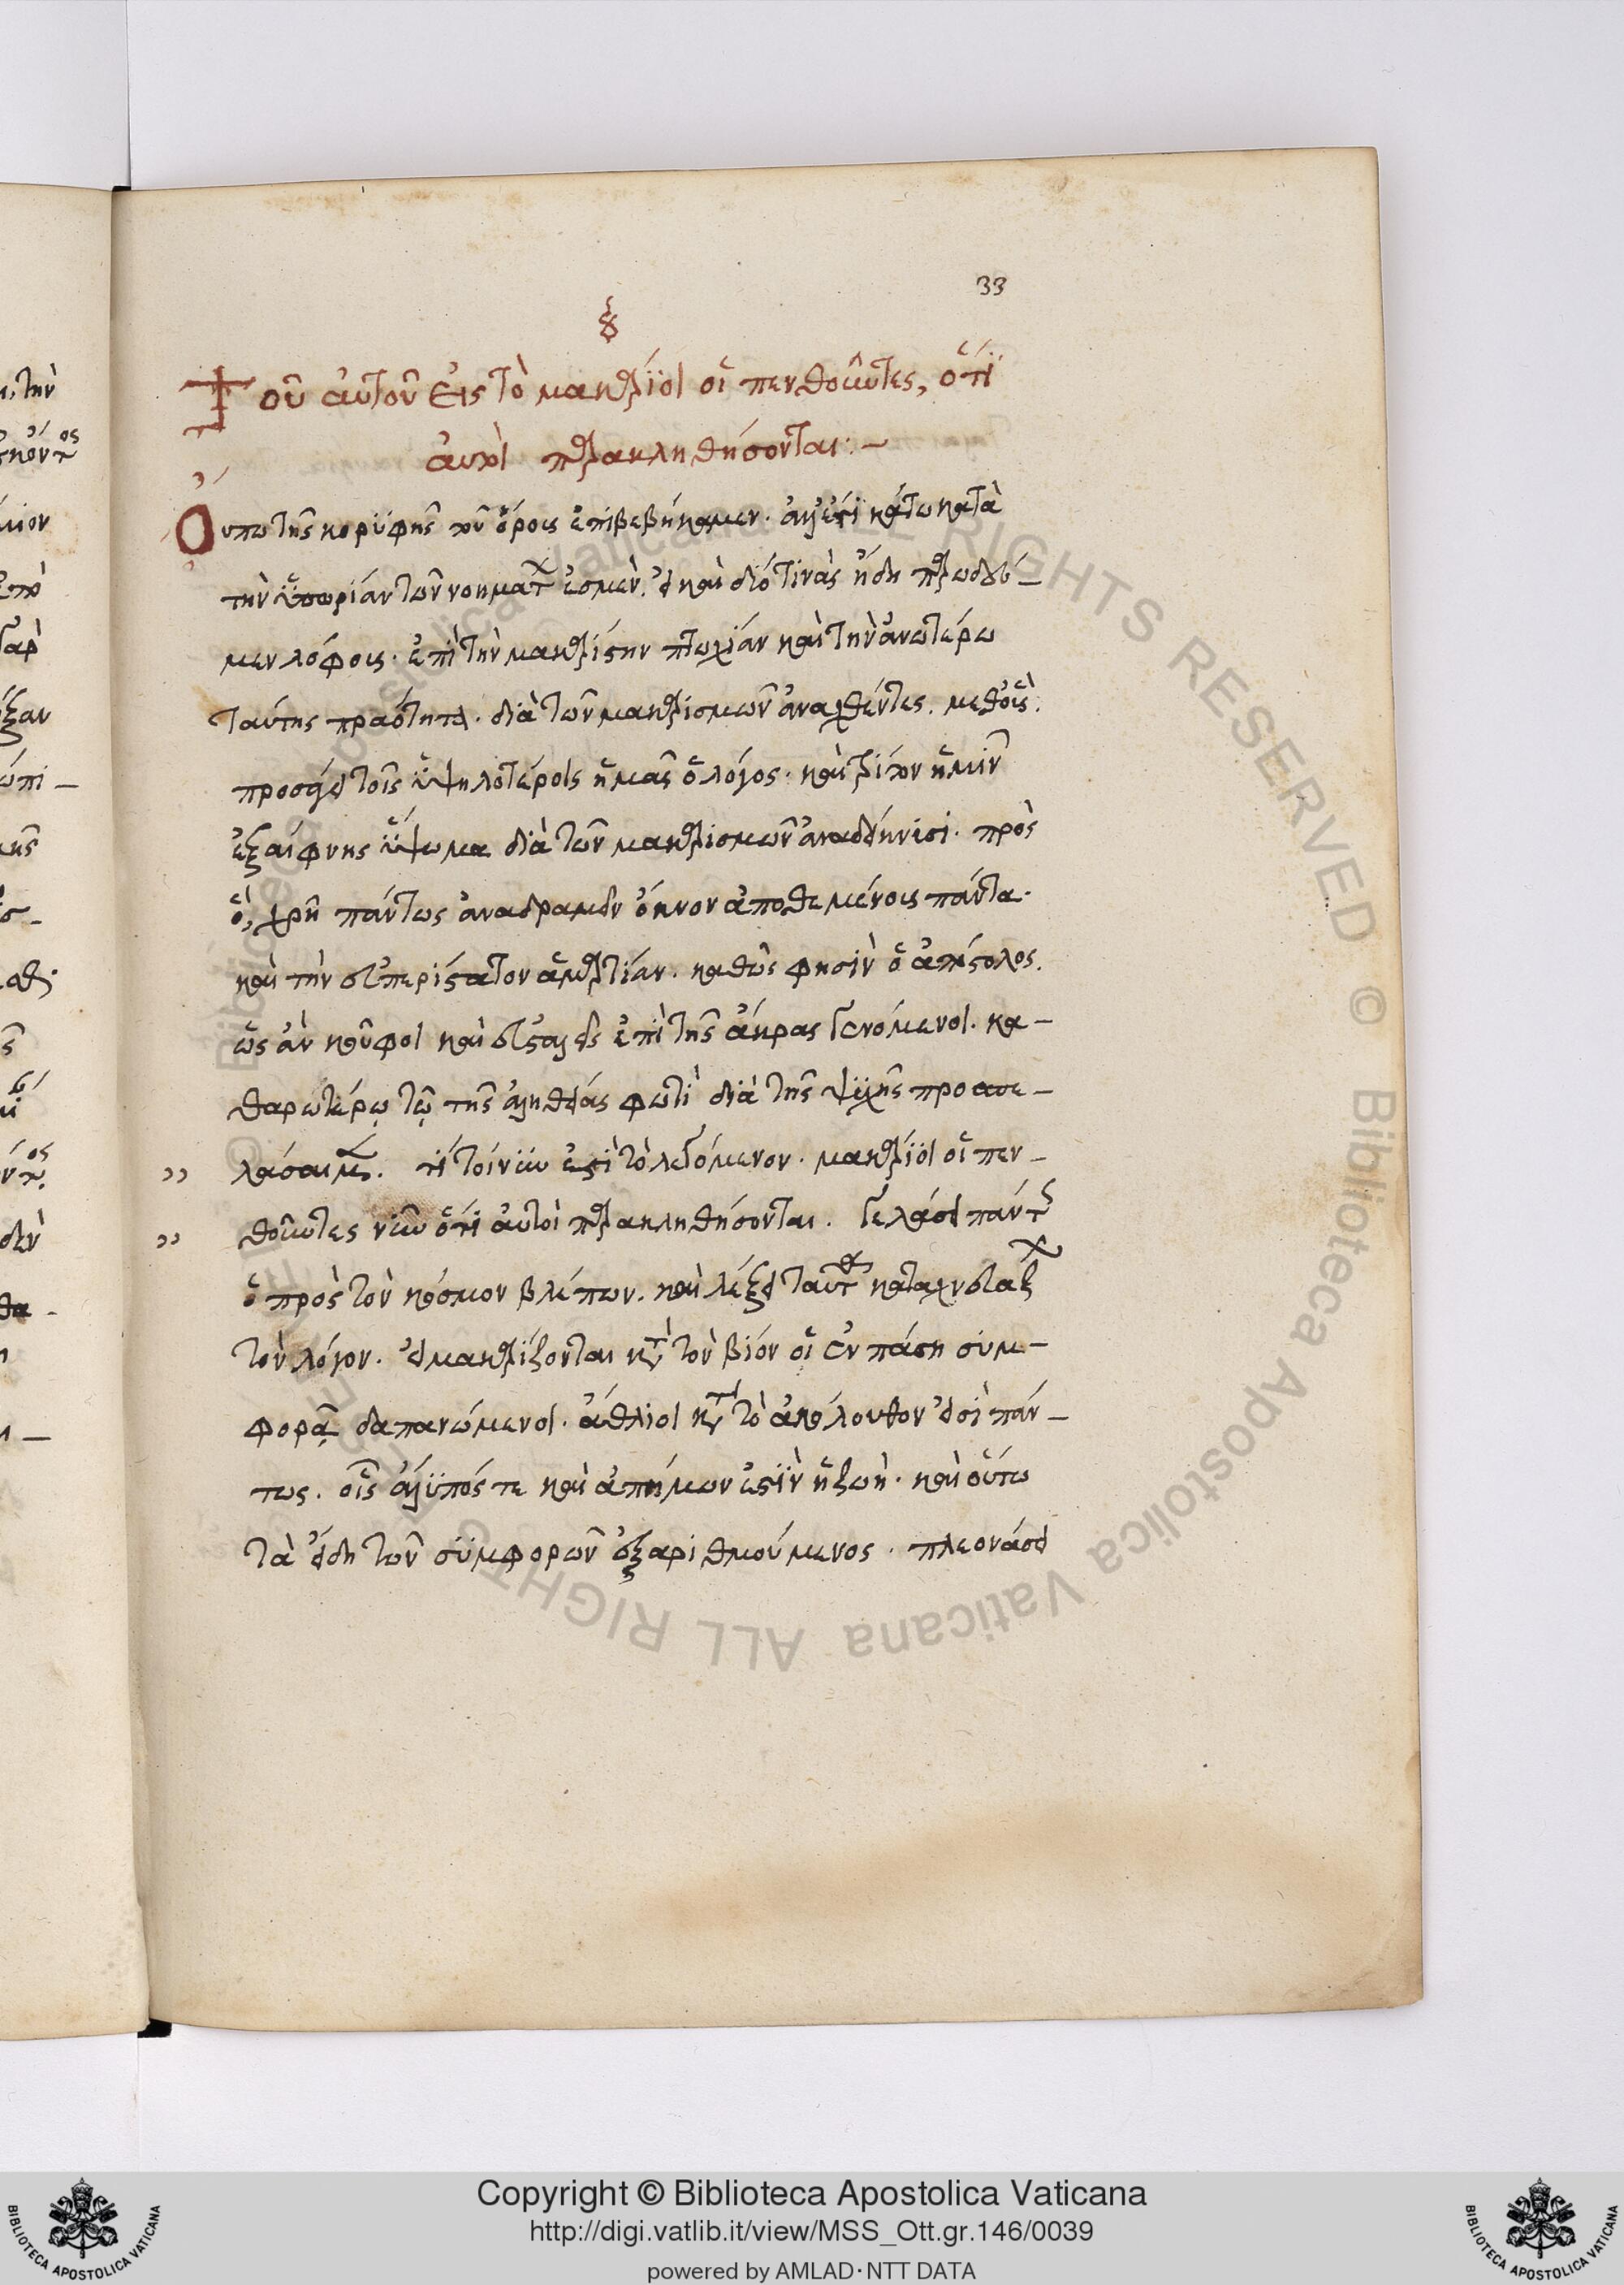 33
Τοῦ αὐτοῦ εἰς τὸ μακάριοι οἱ πενθοῦντες, ὅτι
αὐτοὶ παρακληθήσονται:–
Οὔπω τῆς κορυφῆς τοῦ ὄρους ἐπιβεβήκαμεν. ἀλλ' ἔτι κάτω κατὰ
τὴν ὑπωρίαν τῶν νοημάτων ἐσμέν. εἰ καὶ δύο τινὰς ἤδη παρωδεύ–
μεν λόφους. ἐπὶ τὴν μακαρίστην πτωχίαν καὶ τὴν ἀνωτέρω
ταύτης πραότητα. διὰ τῶν μακαρισμῶν ἀναχθέντες. μεθ' οὓς
προσάγει τοῖς ὑψηλοτέροις ἡμᾶς ὁ λόγος. καὶ τρίτον ἡμῖν
ἐξαίφνης ὕψωμα διὰ τῶν μακαρισμῶν ἀναδείκνυσι. πρὸς
ὃ, χρὴ πάντως ἀναδραμεῖν ὄκνον ἀποθεμένους πάντα.
καὶ τὴν εὐπερίστατον ἁμαρτίαν. καθώς φησιν ὁ ἀπόστολος.
ὡς ἂν κοῦφοι καὶ εὐσταλεῖς ἐπὶ τῆς ἄκρας γενόμενοι. κα–
θαρωτέρῳ τῷ τῆς ἀληθείας φωτὶ διὰ τῆς ψυχῆς προσπε–
λάσαιμεν. τί τοίνυν ἐστὶ τὸ λεγόμενον. μακάριοι οἱ πεν–
θοῦντες νῦν ὅτι αὐτοὶ παρακληθήσονται. γελάσει πάντως
ὁ πρὸς τὸν κόσμον βλέπων. καὶ λέξει ταῦτα καταχευάζων
τὸν λόγον. εἰ μακαρίζονται κατὰ τὸν βίον οἱ ἐν πάσῃ συμ–
φορᾷ δαπανώμενοι. ἄθλιοι κατὰ τὸ ἀκόλουθον εἰσὶ πάν–
τως. οἷς ἄλυπός τε καὶ ἀπήμων ἐστὶν ἡ ζωή. καὶ οὕτω
τὰ εἴδη τῶν συμφορῶν ἐξαριθμούμενος. πλεονάσει
Copyright © Biblioteca Apostolica Vaticana
http://digi.vatlib.it/view/MSS_Ott.gr.146/0039
powered by AMLAD·NTT DATA
BIBLIOTECA APOSTOLICA VATICANA
BIBLIOTECA APOSTOLICA VATICANA